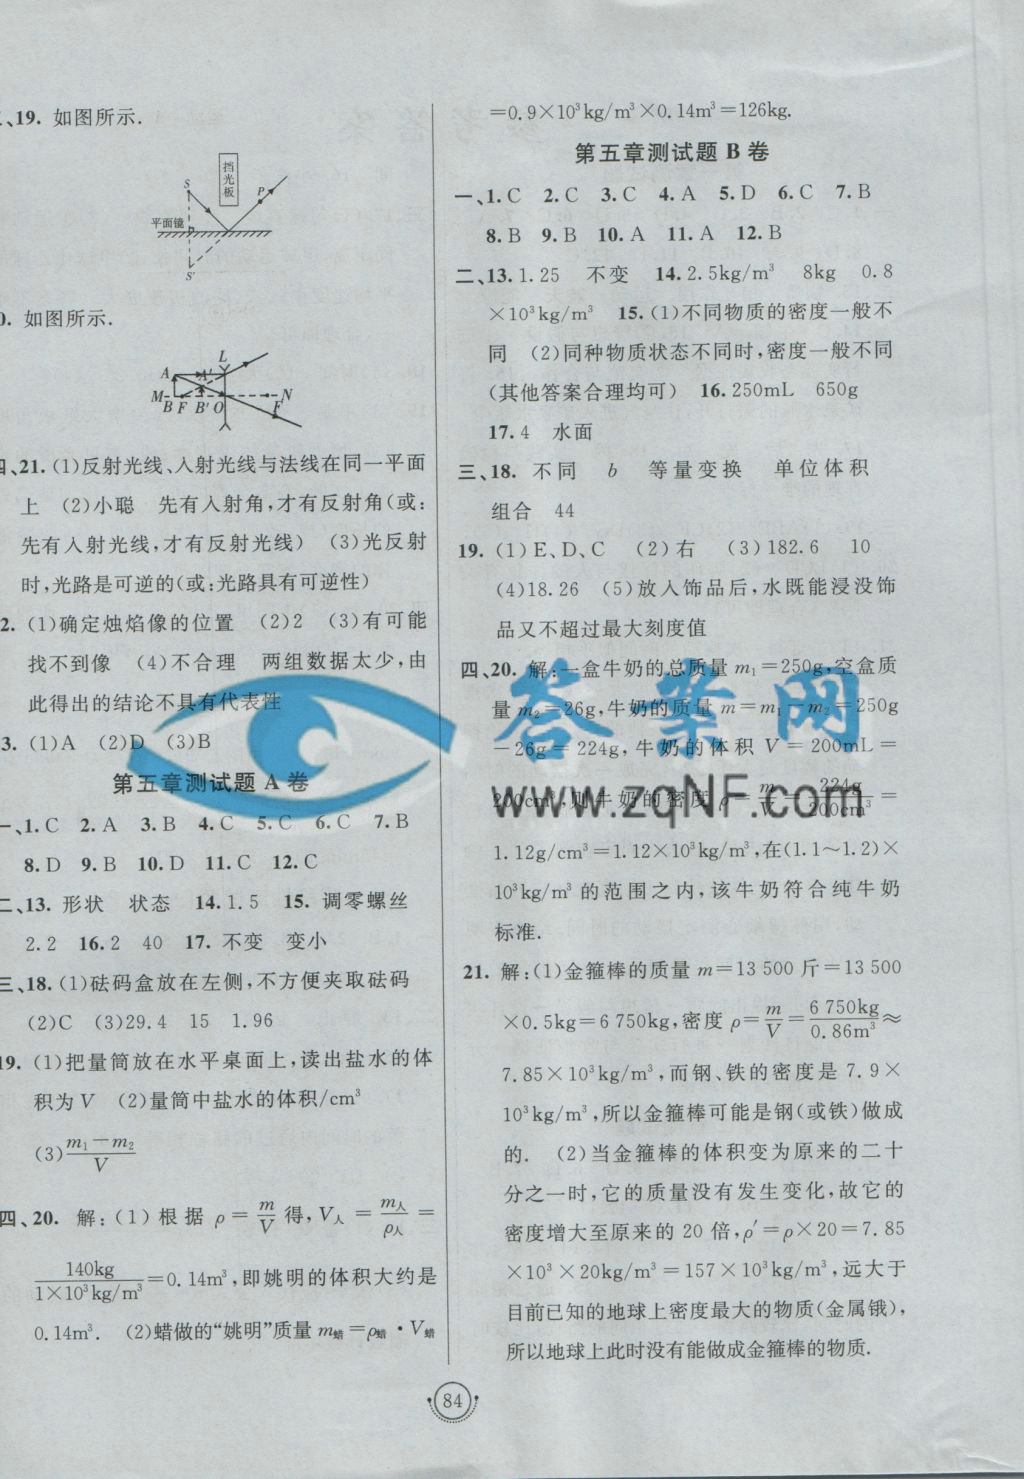 、19. 如图所示.
挡光板
S
P
平面镜
S′
0. 如图所示.
L
A
A′
M
N
B
F
B′
O
F
四、21. (1)反射光线、入射光线与法线在同一平面
上 (2)小聪 先有入射角,才有反射角(或:
先有入射光线,才有反射光线) (3)光反射
时,光路是可逆的(或:光路具有可逆性)
2. (1)确定烛焰像的位置 (2)2 (3)有可能
找不到像 (4)不合理 两组数据太少,由
此得出的结论不具有代表性
3. (1)A (2)D (3)B
第五章测试题 A 卷
一、1. C 2. A 3. B 4. C 5. C 6. C 7. B
8. D 9. B 10. D 11. C 12. C
二、13. 形状 状态 14. 1.5 15. 调零螺丝
2.2 16. 2 40 17. 不变 变小
三、18. (1)砝码盒放在左侧,不方便夹取砝码
(2)C (3)29.4 15 1.96
19. (1)把量筒放在水平桌面上,读出盐水的体
积为 V (2)量筒中盐水的体积/cm³
(3) (m₁－m₂)/V
四、20. 解:(1)根据 ρ＝m/V 得,V人＝m人/ρ人＝
140kg/(1×10³kg/m³)＝0.14m³,即姚明的体积大约是
0.14m³. (2)蜡做的“姚明”质量 m蜡＝ρ蜡·V蜡
＝0.9×10³kg/m³×0.14m³＝126kg.
第五章测试题 B 卷
一、1. C 2. C 3. C 4. A 5. D 6. C 7. B
8. B 9. B 10. A 11. A 12. B
二、13. 1.25 不变 14. 2.5kg/m³ 8kg 0.8
×10³kg/m³ 15. (1)不同物质的密度一般不
同 (2)同种物质状态不同时,密度一般不同
(其他答案合理均可) 16. 250mL 650g
17. 4 水面
三、18. 不同 b 等量变换 单位体积
组合 44
19. (1)E、D、C (2)右 (3)182.6 10
(4)18.26 (5)放入饰品后,水既能浸没饰
品又不超过最大刻度值
四、20. 解:一盒牛奶的总质量 m₁＝250g,空盒质
量 m₂＝26g,牛奶的质量 m＝m₁－m₂＝250g
－26g＝224g,牛奶的体积 V＝200mL＝
200cm³,则牛奶的密度 ρ＝m/V＝224g/200cm³＝
1.12g/cm³＝1.12×10³kg/m³,在(1.1~1.2)×
10³kg/m³ 的范围之内,该牛奶符合纯牛奶
标准.
21. 解:(1)金箍棒的质量 m＝13 500 斤＝13 500
×0.5kg＝6 750kg,密度 ρ＝m/V＝6 750kg/0.86m³≈
7.85×10³kg/m³,而钢、铁的密度是 7.9×
10³kg/m³,所以金箍棒可能是钢(或铁)做成
的. (2)当金箍棒的体积变为原来的二十
分之一时,它的质量没有发生变化,故它的
密度增大至原来的 20 倍,ρ′＝ρ×20＝7.85
×10³×20kg/m³＝157×10³kg/m³,远大于
目前已知的地球上密度最大的物质(金属锇),
所以地球上此时没有能做成金箍棒的物质.
84
答案网
www.zqNF.com